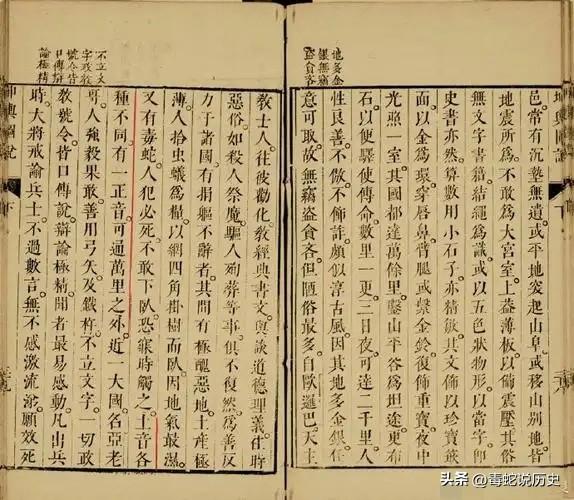 地多金
銀無竊
盜貪吝
坤輿圖說
下
邑。常有沉墊無遺。或平地突起山阜。或移山别地。皆
地震所為。不敢為大宮室。上蓋薄板。以備震壓。其俗
無文字書籍。結繩為識。或以五色狀物形以當字。即
史書亦然。算數用小石子。亦精敏。其文飾以珍寶簇
面。以金為環。穿唇鼻。臂腿或繫金鈴。復飾重寶。夜中
光照一室。其國都達萬餘里。鑿山平谷為坦途。更布
石以便驛使傳命。數里一更。三日夜可達二千里。人
性良善。不傲。不飾詐。頗似淳古風。因其地多金銀。任
意可取。故無竊盜貪吝。但陋俗最多。自歐邏巴天主
不立文
字政教
號令皆
口傳辯
論極精
教士人。往彼勸化。教經典書文。與談道德理義。往時
惡俗。如殺人祭魔。驅人殉葬等事。俱不復然。為善反
力于諸國。有捐軀不辭者。其間有極醜惡地。土產極
薄。人拾虫蟻為糧。以網四角掛樹而臥。因地氣最濕。
又有毒蛇。人犯必死。不敢下臥。恐寐時觸之。土音各
種不同。有一正音。可通萬里之外。近一大國。名亞老
哥。人強毅果敢。善用弓矢及鐵杵。不立文字。一切政
教號令。皆口傳說。辯論極精。聞者最易感動。凡出兵
時。大將戒諭兵士。不過數言。無不感激流涕。願效死
坤輿圖說
下
头条 @毒蛇说历史